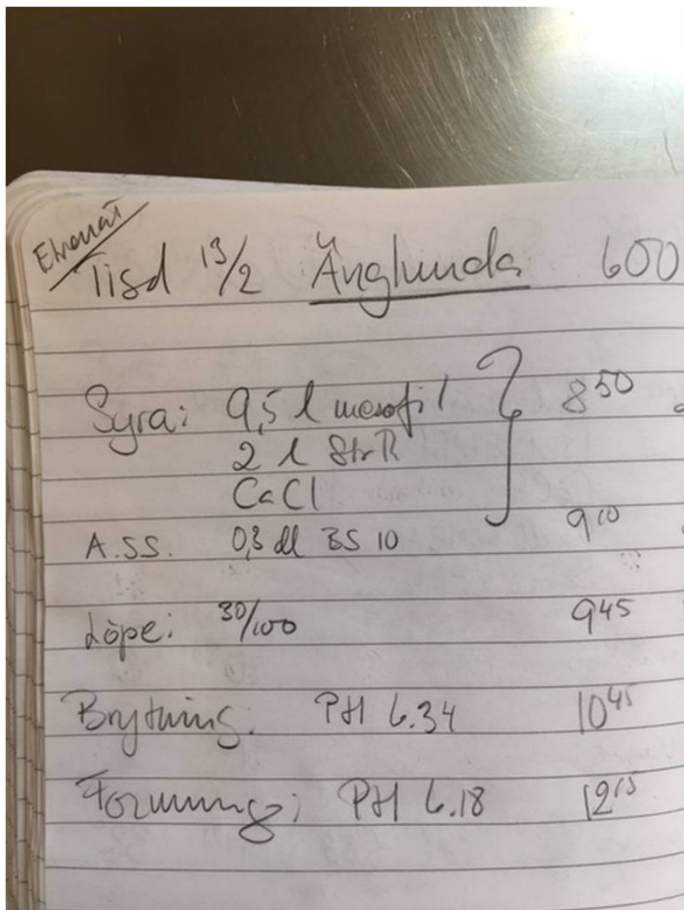 Tisd 13/2 Änglunda 600
Syra: 9,5 l mesofil 850
2 l StrR
CaCl
A.SS. 0,3 dl BS 10 910
Löpe: 30/100 945
Brytning: PH 6.34 1045
Formning: PH 6.18 1215